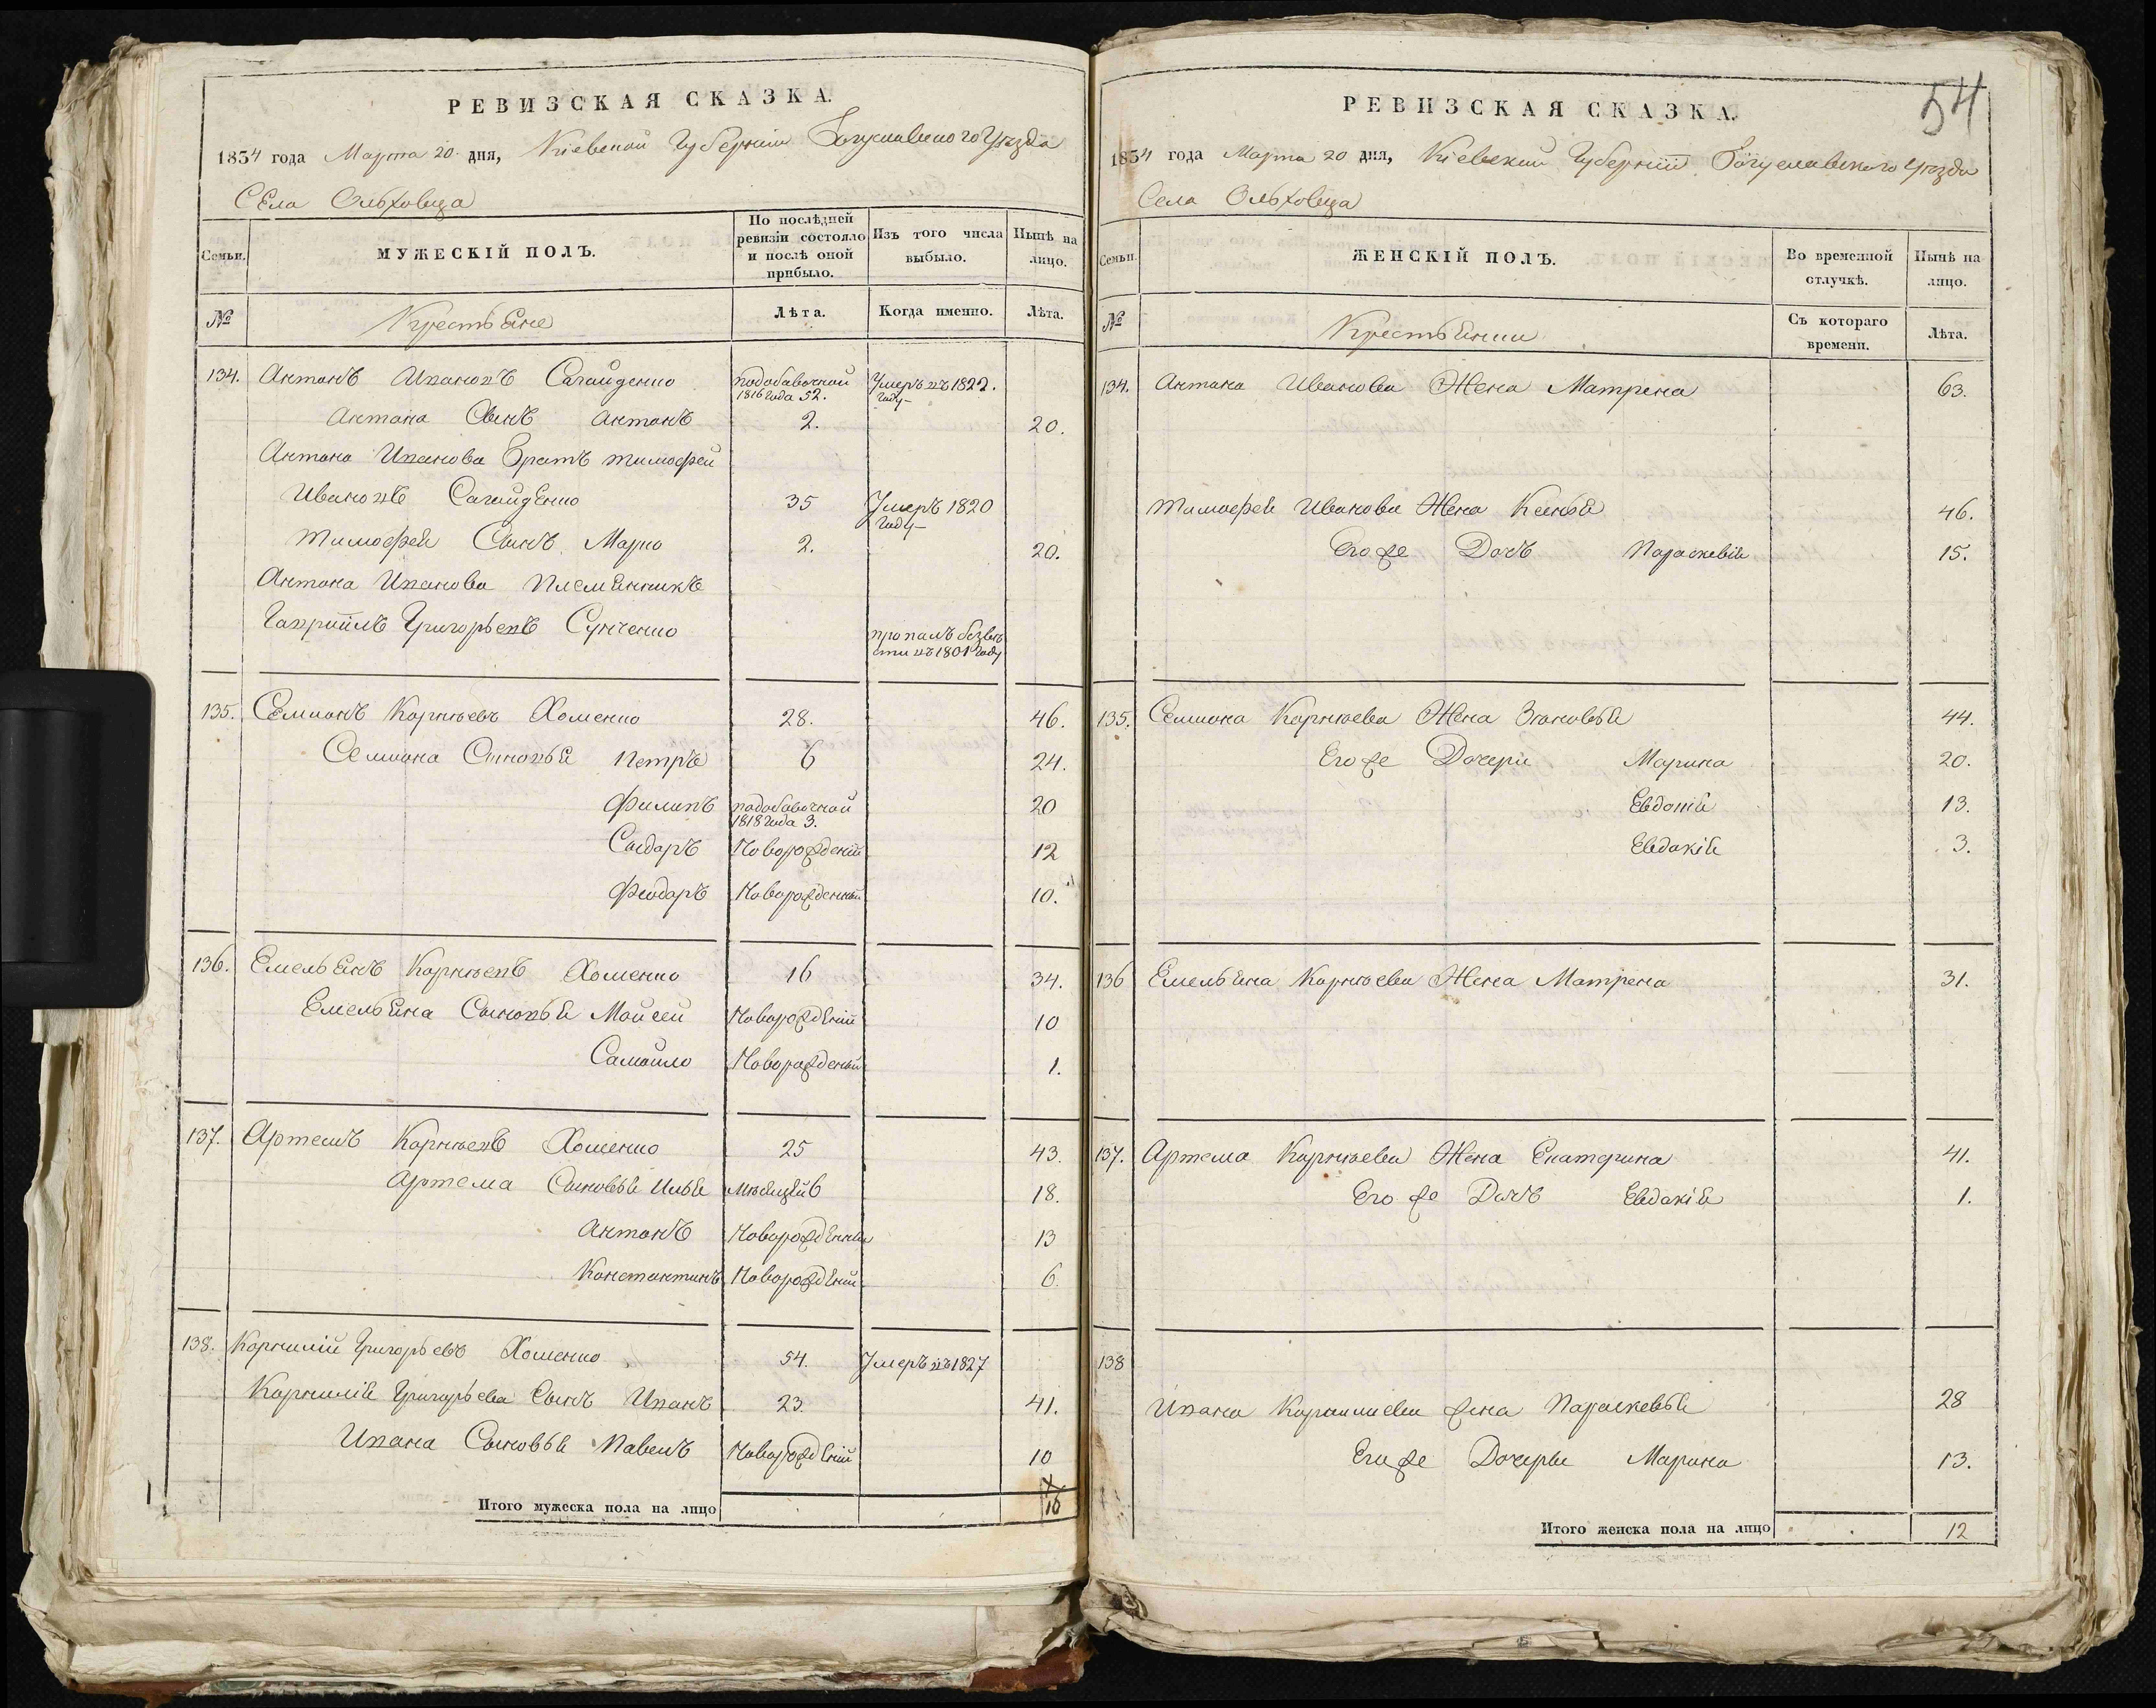 РЕВИЗСКАЯ СКАЗКА.
1834 года Марта 20 дня, Кіевской Губерніи Богуславского Уѣзда
Села Ольховца
Семьи.
МУЖЕСКІЙ ПОЛЪ.
По послѣдней ревизіи состояло и послѣ оной прибыло.
Изъ того числа выбыло.
Нынѣ на лицо.
№
Крестьяне
Лѣта.
Когда именно.
Лѣта.
134. Антонъ Ивановъ Сагайденко подобавочной 1816 года 52. Умеръ въ 1822. году
Антона Сынъ Антонъ 2. 20.
Антона Иванова Братъ Тимофей
Ивановъ Сагайденко 35 Умеръ 1820 году
Тимофея Сынъ Марко 2. 20.
Антона Иванова Племянникъ
Гавріилъ Григорьевъ Сунченко пропалъ безвѣсти въ 1801 году
135. Семионъ Корнѣевъ Хоменко 28. 46.
Семиона Сыновья Петръ 6 24.
Филипъ подобавочной 1818 года 3. 20
Сидоръ Новорожденій 12
Феодоръ Новорожденный 10.
136. Емельянъ Корнѣевъ Хоменко 16 34.
Емельяна Сыновья Мойсей Новорожденій 10
Самойло Новорожденый 1.
137. Артемъ Корнѣевъ Хоменко 25 43.
Артема Сыновья Илья мѣсяцей 6 18.
Антонъ Новорожденны 13
Константинъ Новорожденій 6.
138. Корнилій Григорьевъ Хоменко 54. Умеръ въ 1827
Корнилія Григорьева Сынъ Иванъ 23. 41.
Ивана Сыновья Павелъ Новорожденій 10
Итого мужеска пола на лицо 16
54
РЕВИЗСКАЯ СКАЗКА.
1834 года Марта 20 дня, Кіевской Губерніи Богуславского Уѣзда
Села Ольховца
Семьи.
ЖЕНСКІЙ ПОЛЪ.
Во временной отлучкѣ.
Нынѣ на лицо.
№
Крестьянки
Съ котораго времени.
Лѣта.
134. Антона Иванова Жена Матрена 63.
Тимофея Иванова Жена Ксенья 46.
Его же Дочь Параскевія 15.
135. Семиона Корнѣева Жена Зѣновья 44.
Его же Дочери Марина 20.
Евдокія 13.
Евдокія 3.
136 Емельяна Корнѣева Жена Матрена 31.
137. Артема Корнѣева Жена Екатерина 41.
Его же Дочь Евдокія 1.
138
Ивана Корнилиева жена Параскевья 28
Его же Дочеры Марина 13.
Итого женска пола на лицо 12